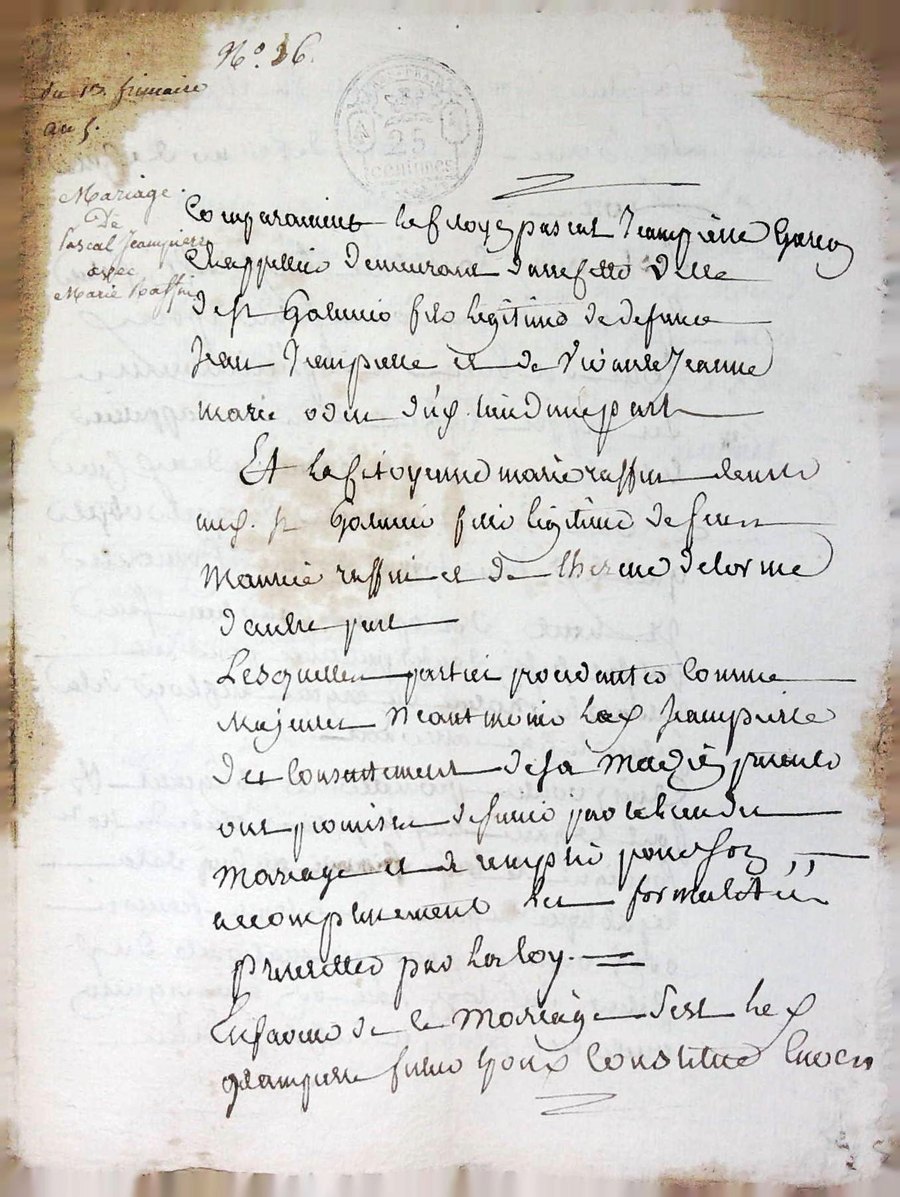 N.° 16.
du 13. frimaire
an 5.
Mariage
De
Pascal Jeampierre
avec
Marie Raffin
25
centimes
Comparaissent le citoyen pascal Jeampierre Garçon
Chappellier demeurant ville
de St Galmier fils legitime de defunt
Jean Jeampierre et de vivante Jeanne
marie odin d'une part
Et la citoyenne marie raffin
St Galmier fille legitime de feu
raffin et de delorme
d'autre part
Lesquelles parties procedantes comme
Majeures Neantmoins le Jeampierre
du Consentement de sa
ont promis de s'unir par le lien du
Mariage et de remplir pour son
accomplissement les formalités
prescrittes par la loy.
En faveur de ce Mariage le
Jeampierre futur epoux Constitue